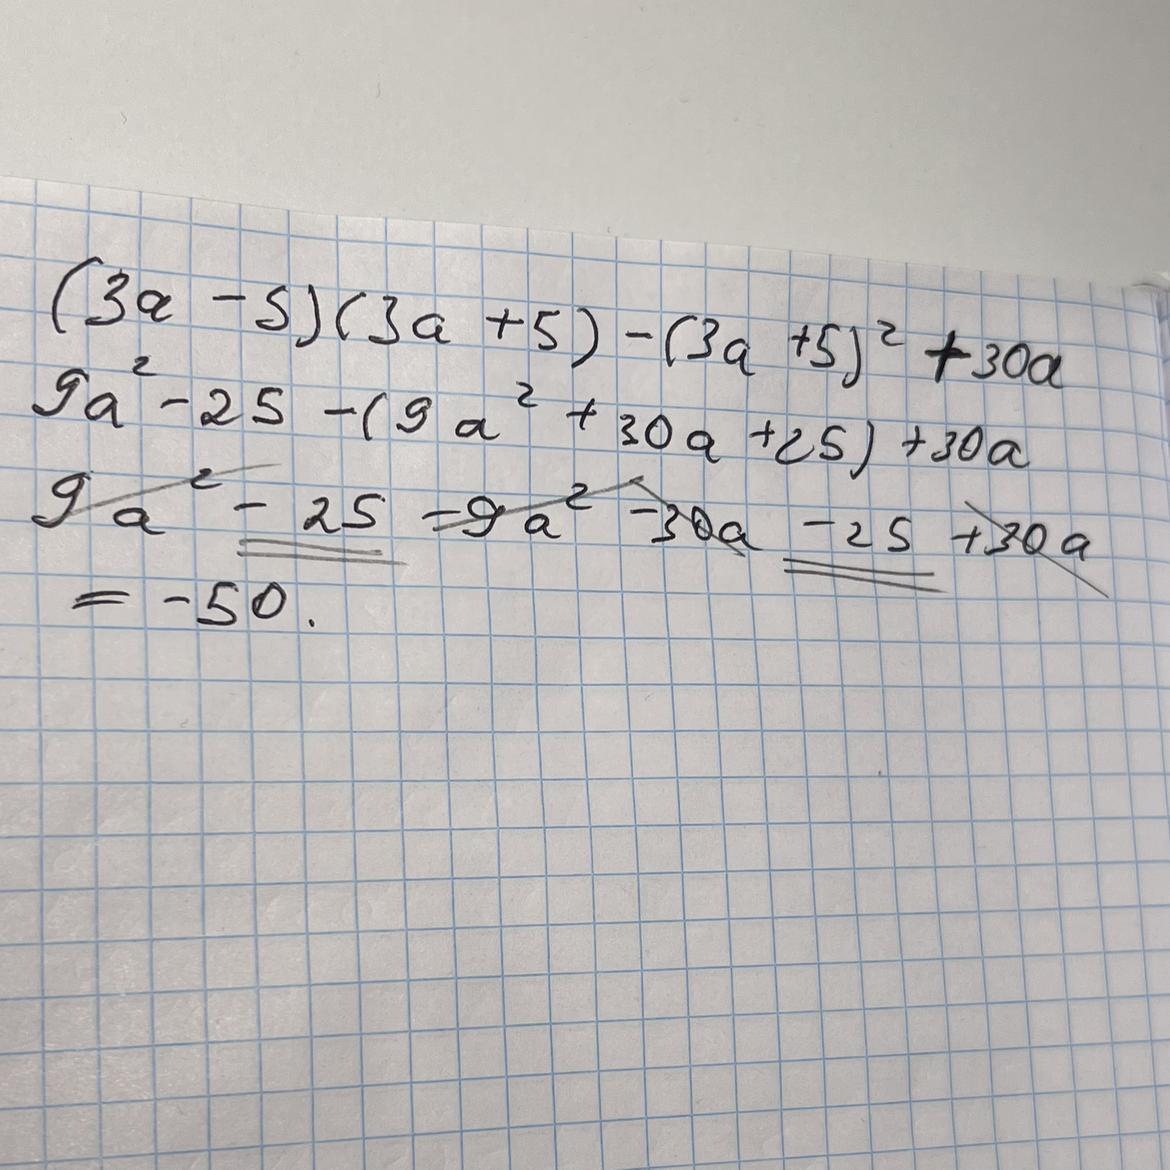 (3a - 5)(3a + 5) - (3a + 5)² + 30a
9a² - 25 - (9a² + 30a + 25) + 30a
9a² - 25 - 9a² - 30a - 25 + 30a
= -50.